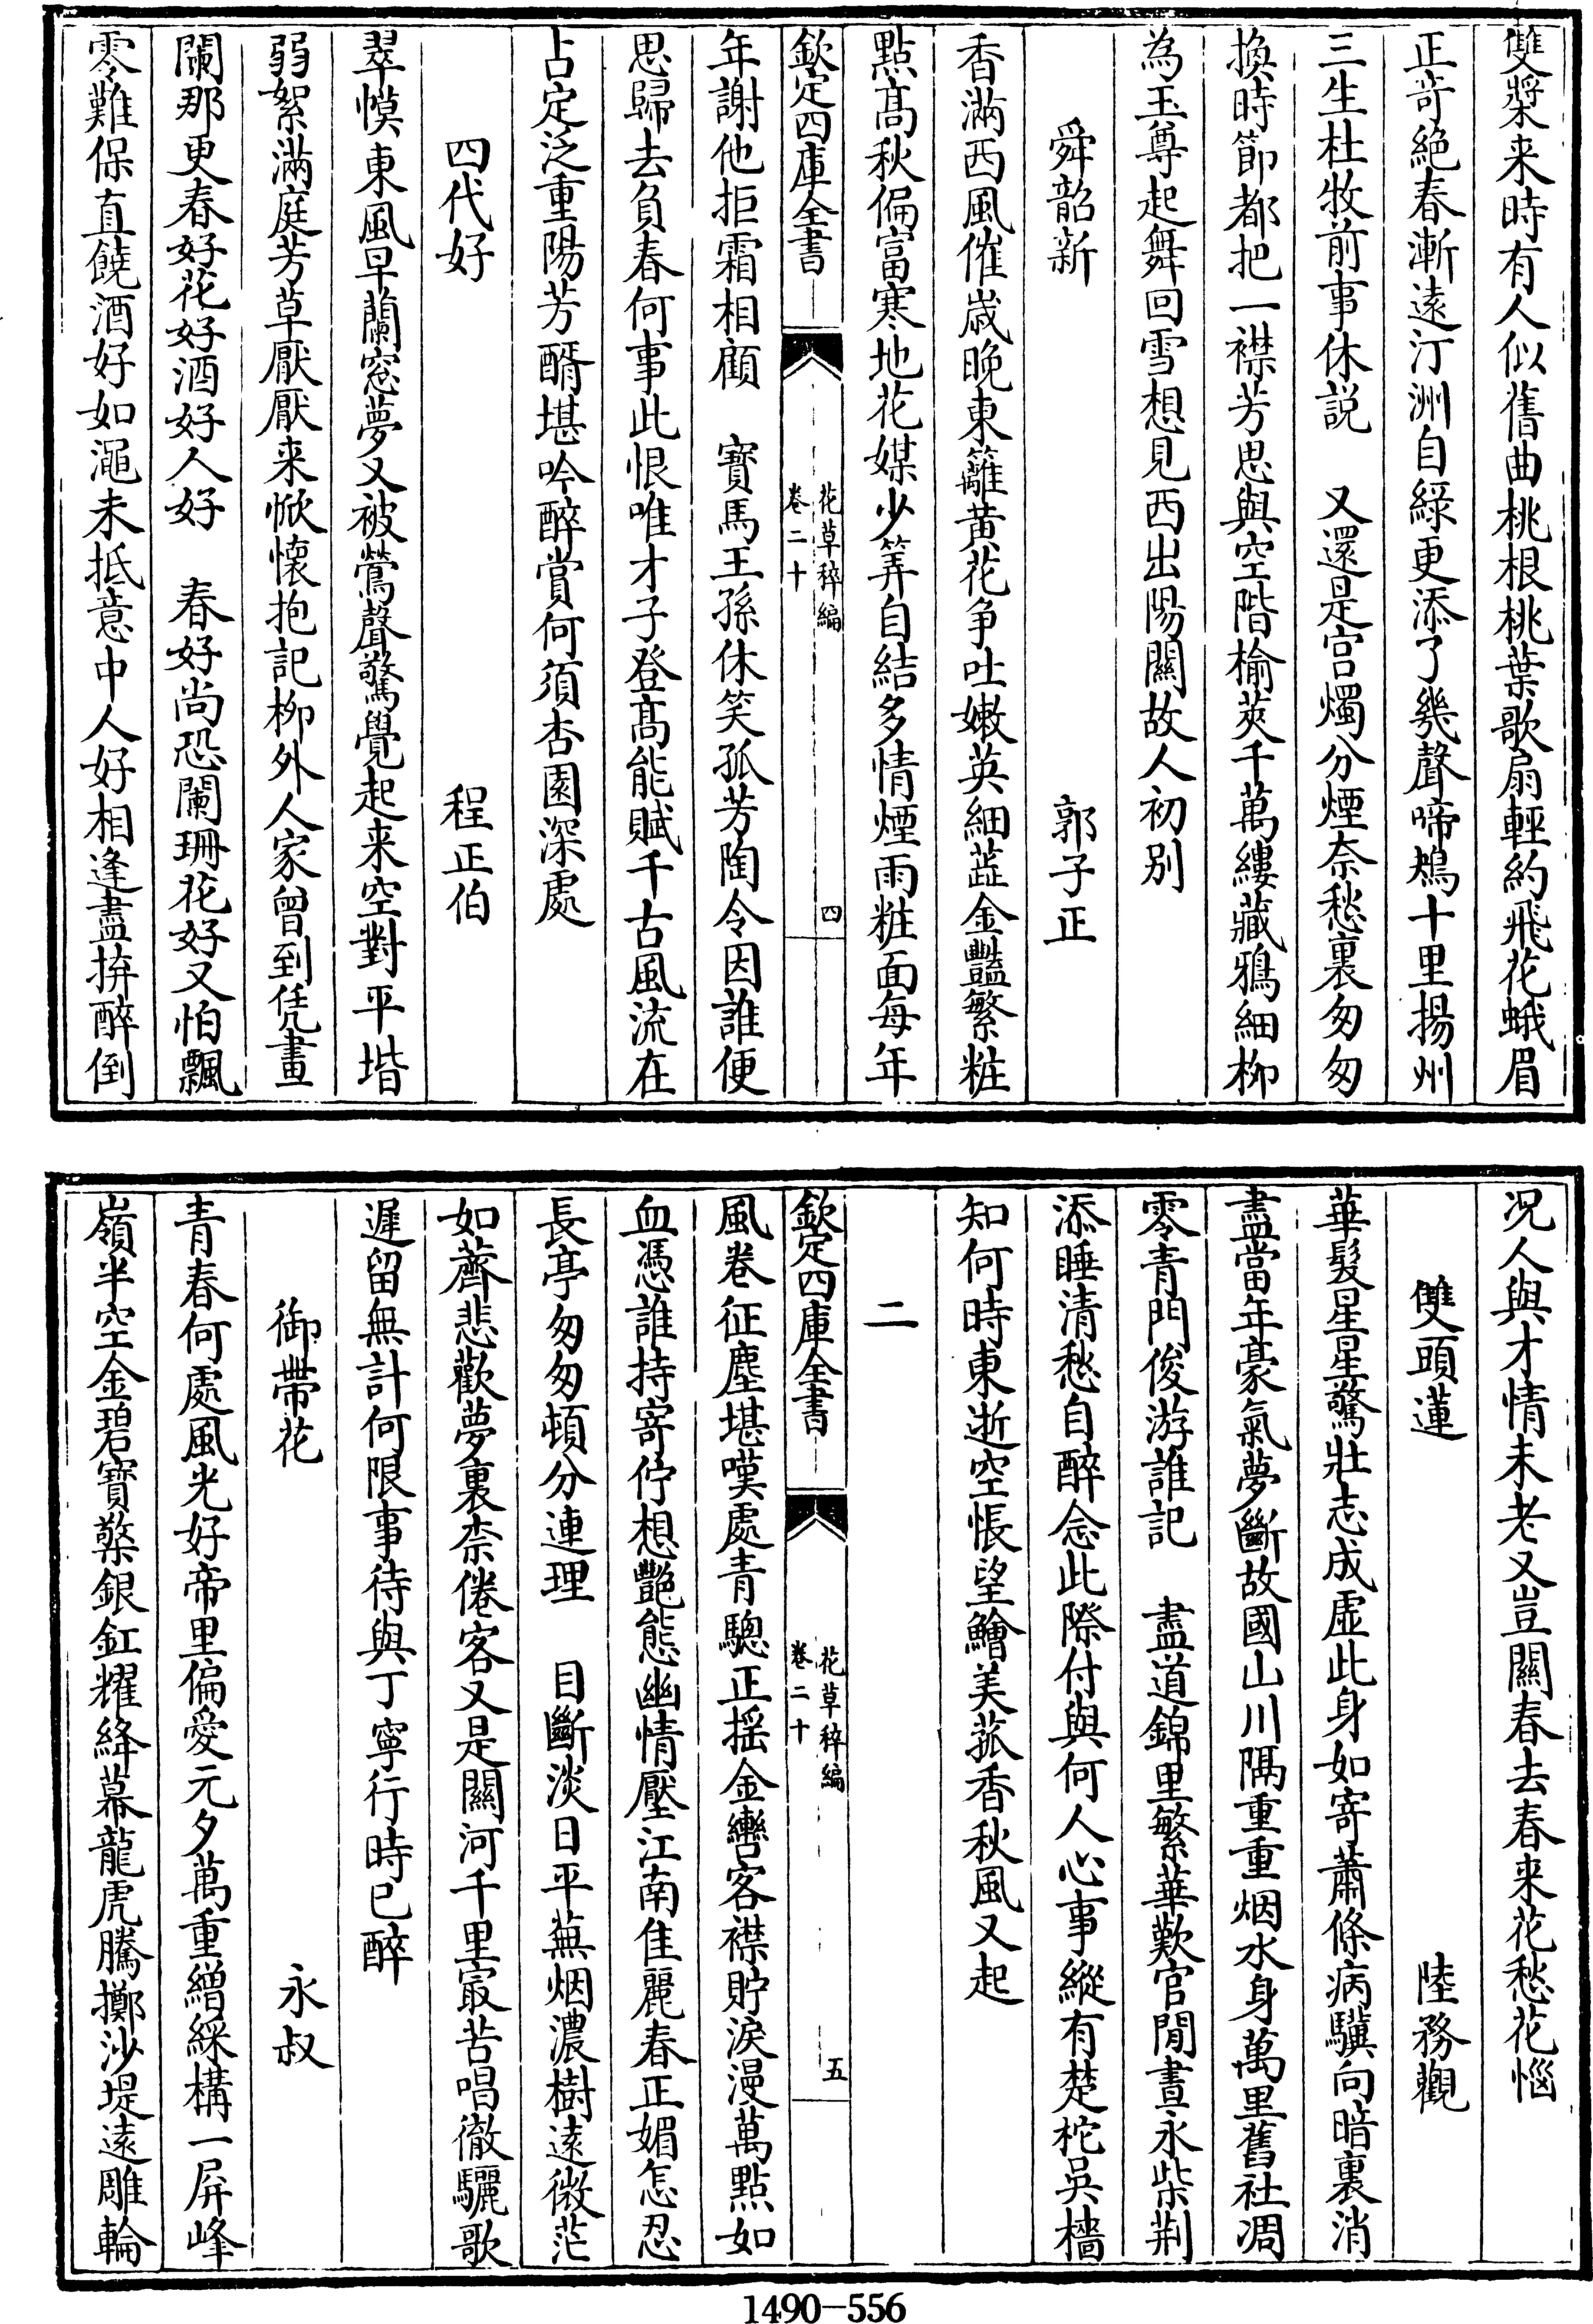 雙槳来時有人似舊曲桃根桃葉歌扇輕約飛花蛾眉
正竒絶春漸遠汀洲自緑更添了幾聲啼鴂十里揚州
三生杜牧前事休説　又還是宫燭分煙奈愁裏匆匆
換時節都把一襟芳思與空階榆莢千萬縷藏鴉細柳
為玉尊起舞回雪想見西出陽關故人初别
舜韶新　郭子正
香滿西風催歲晚東籬黄花争吐嫩英細蕋金豔繁粧
點髙秋偏富寒地花媒少筭自結多情煙雨粧面每年
欽定四庫全書　花草稡編　卷二十　四
年謝他拒霜相顧　寶馬王孫休笑孤芳陶令因誰便
思歸去負春何事此恨唯才子登髙能賦千古風流在
占定泛重陽芳醑堪吟醉賞何須杏園深處
四代好　程正伯
翠幙東風早蘭窓夢又被鶯聲驚覺起来空對平堦
弱絮滿庭芳草厭厭来惞懐抱記柳外人家曾到凭畫
闌那更春好花好酒好人好　春好尚恐闌珊花好又怕飄
零難保直饒酒好如澠未抵意中人好相逢盡拚醉倒
况人與才情未老又豈關春去春来花愁花惱
雙頭蓮　陸務觀
華髮星星驚壯志成虛此身如寄蕭條病驥向暗裏消
盡當年豪氣夢斷故國山川隔重重烟水身萬里舊社凋
零青門俊游誰記　盡道錦里繁華歎官閒晝永柴荆
添睡清愁自醉念此際付與何人心事縱有楚柁吳檣
知何時東逝空悵望鱠美菰香秋風又起
二
欽定四庫全書　花草稡編　卷二十　五
風卷征塵堪嘆處青驄正揺金轡客襟貯淚漫萬點如
血憑誰持寄佇想艷態幽情壓江南佳麗春正媚怎忍
長亭匆匆頓分連理　目斷淡日平蕪烟濃樹遠微茫
如薺悲歡夢裏柰倦客又是關河千里㝡苦唱徹驪歌
遲留無計何限事待與丁寧行時已醉
御帶花　永叔
青春何處風光好帝里偏愛元夕萬重繒綵構一屏峰
嶺半空金碧寶檠銀釭耀絳幕龍虎騰擲沙堤遠雕輪
1490—556